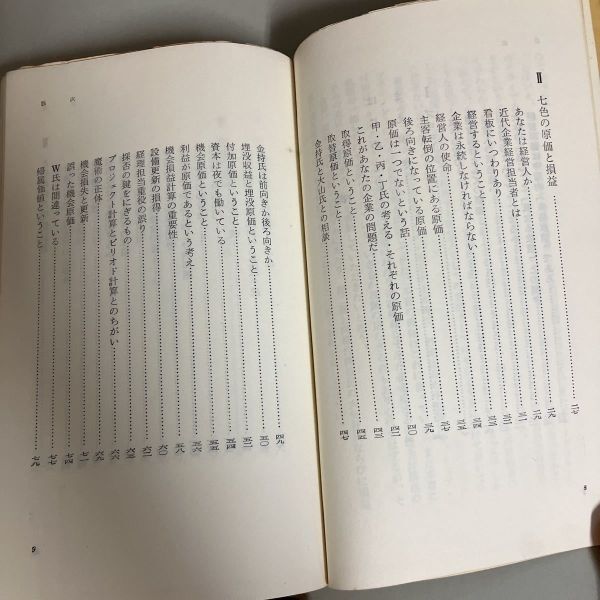 II 七色の原価と損益……二七
あなたは経営人か……二九
近代企業経営担当者とは……二九
看板にいつわりあり……三一
経営するということ……三二
企業は永続しなければならない……三四
経営人の使命……三五
主客転倒の位置にある原価……三七
後ろ向きになっている原価……三九
原価は一つでないという話……四〇
甲・乙・丙・丁氏の考える・それぞれの原価……四二
これがあなたの企業の問題だ……四三
取得原価ということ……四四
取替原価ということ……四五
金持氏と大山氏との相談……四七
8
目 次
金持氏は前向きか後ろ向きか……四九
埋没収益と埋没原価ということ……五〇
付加原価ということ……五二
資本は夜でも働いている……五四
機会原価ということ……五五
利益が原価であるという考え……五六
機会損益計算の重要性……五八
設備更新の損得……六〇
経理担当重役の誤り……六二
採否の鍵をにぎるもの……六三
プロジェクト計算とピリオド計算とのちがい……六六
魔術の正体……六九
機会損失と更新……七一
誤った機会原価……七四
W氏は間違っている……七七
帰属価値ということ……七九
9